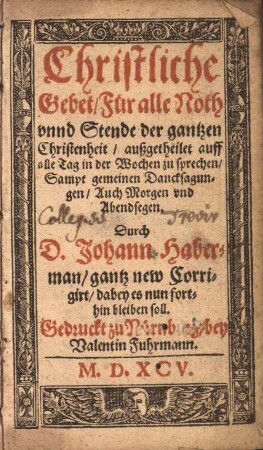 Christliche
Gebet / Für alle Noth
vnnd Stende der gantzen
Christenheit / außgetheilet auff
alle Tag in der Wochen zu sprechen /
Sampt gemeinen Dancksagun-
gen / Auch Morgen vnd
Abendsegen.
Durch
D. Johann Haber-
man / gantz new Corri-
girt / dabey es nun fort-
hin bleiben soll.
Gedruckt zu bey
Valentin Fuhrmann.
M. D. XCV.